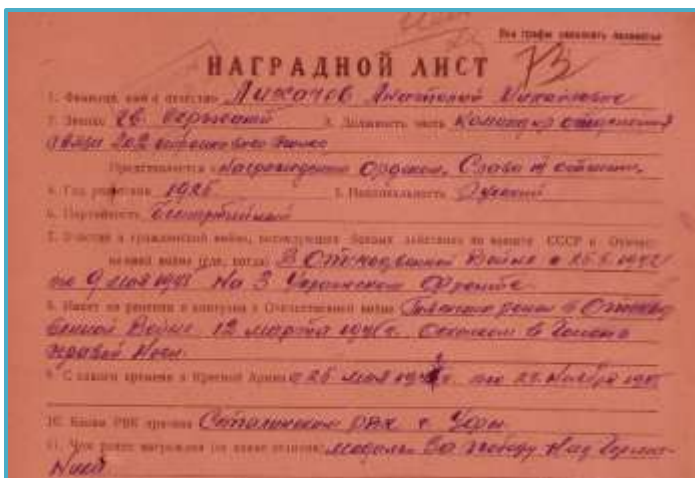 Все графы заполнять полностью
73
НАГРАДНОЙ ЛИСТ
1. Фамилия, имя и отчество Лихачов Анатолий Михайлович
2. Звание гв. сержант 3. Должность, часть Командир отделения
связи 202 стрелкового полка
Представляется к награждению Орденом, Слава III степени,
4. Год рождения 1925 5. Национальность Русский
6. Партийность Беспартийный
7. Участие в гражданской войне, последующих боевых действиях по защите СССР и Отечест-
венной войне (где, когда) В Отечественной Войне с
по 9 мая На 3 Украинском Фронте
8. Имеет ли ранения и контузии в Отечественной войне ранен в Отечест
венной Войне 12 марта Осколком в Голень
правой Ноги.
9. С какого времени в Красной Армии с 26 мая по Ноября
10. Каким РВК призван Сталинским РВК г. Уфы
11. Чем ранее награжден (за какие отличия) медаль За победу Над Герма-
нией